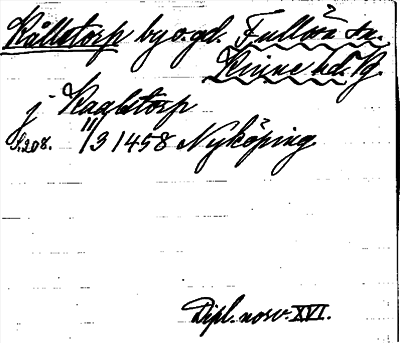 Kållstorp by o. gd. Fullösa sn.
Kinne hd. Vg.
j Kaalstorp
S.208. 11/3 1458 Nyköping
Dipl. norv. XVI.